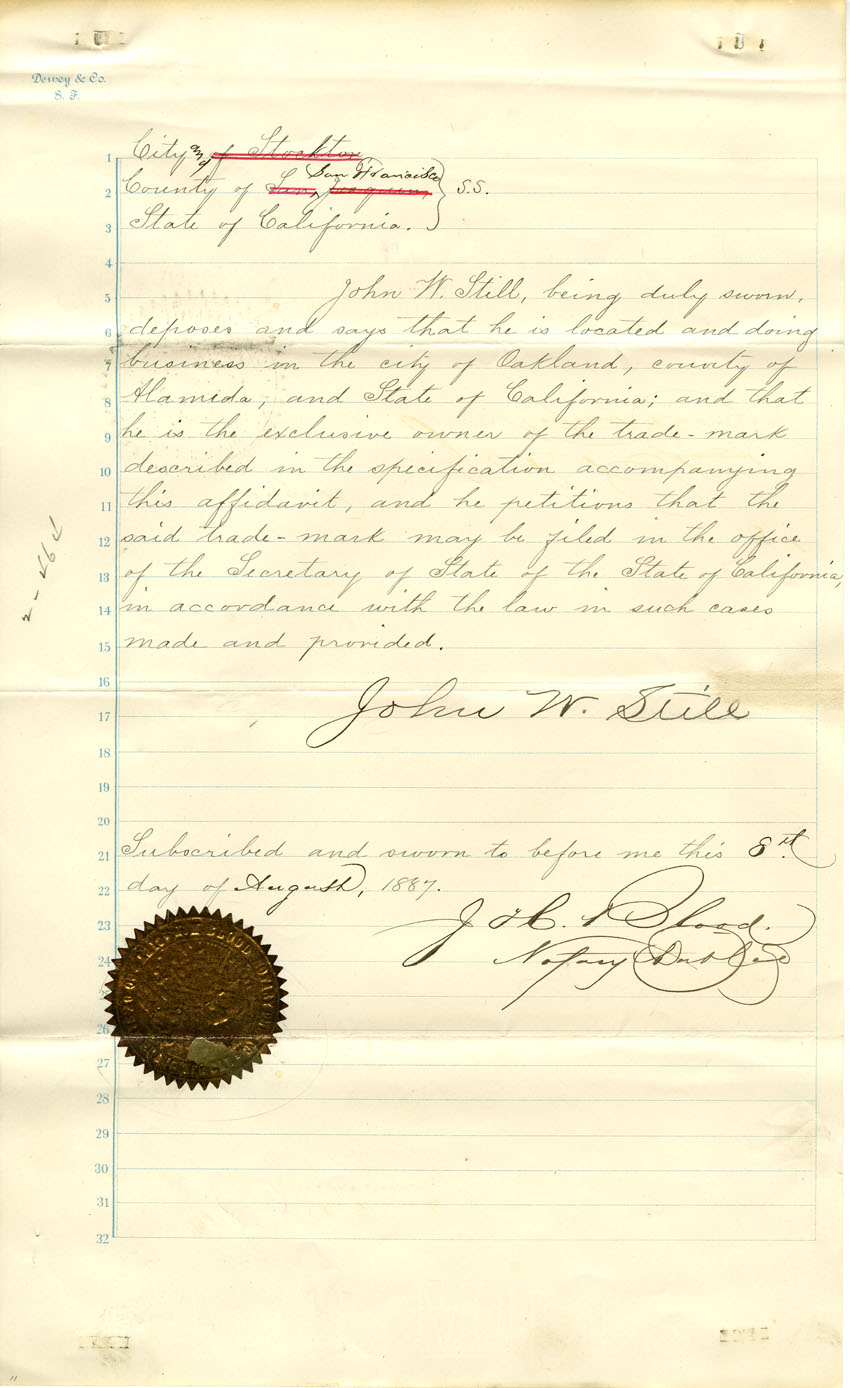 Dewey & Co.
S. F.
1 City and of Stockton
San Francisco
2 County of San Joaquin, } S.S.
3 State of California.
4
5 John W. Still, being duly sworn,
6 deposes and says that he is located and doing
7 business in the city of Oakland, county of
8 Alameda, and State of California; and that
9 he is the exclusive owner of the trade-mark
10 described in the specification accompanying
11 this affidavit, and he petitions that the
12 said trade-mark may be filed in the office
13 of the Secretary of State of the State of California,
14 in accordance with the law in such cases
15 made and provided.
16
17 John W. Still
18
19
20
21 Subscribed and sworn to before me this 8th
22 day of August, 1887.
23 J. H. Blood.
24 Notary Public
26
27
28
29
30
31
32